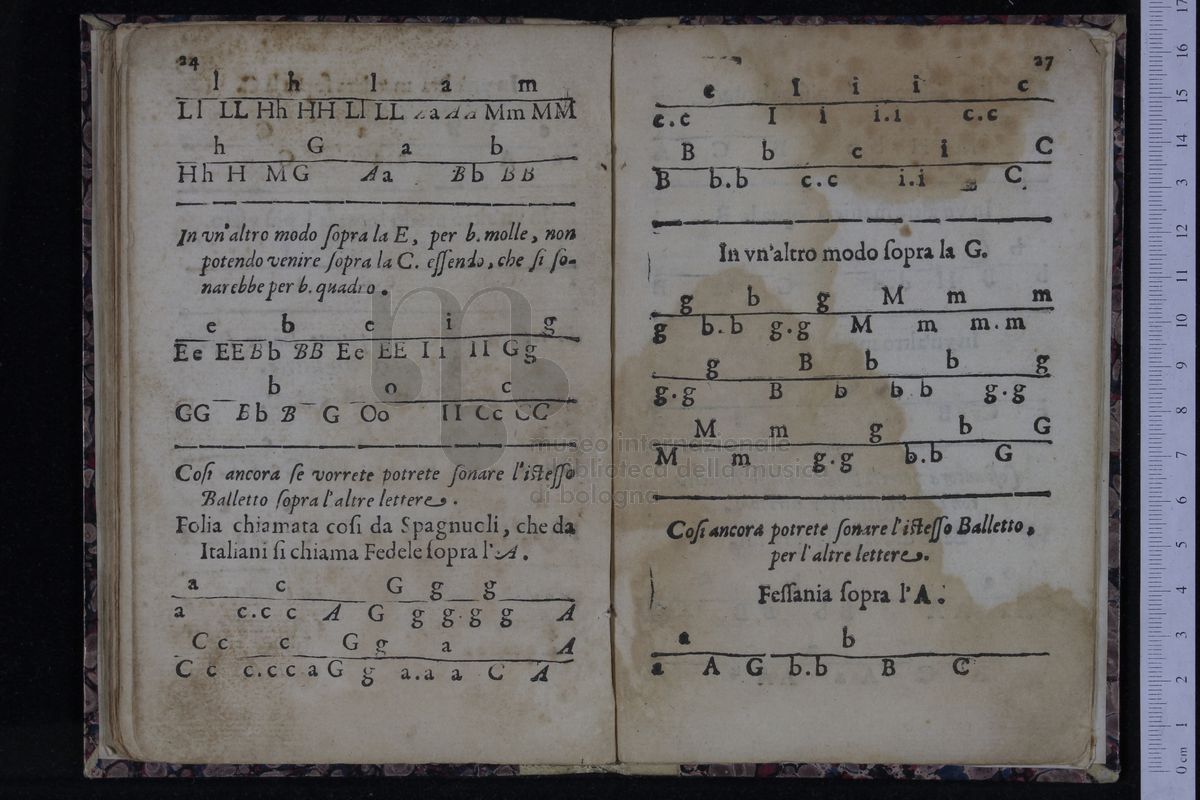 24
l h l a m
Ll LL Hh HH Ll LL Aa Mm MM
h G a b
Hh H M G Aa Bb BB
In vn'altro modo ſopra la E, per b. molle, non
potendo venire ſopra la C. eſſendo, che ſi ſo-
narebbe per b. quadro.
e b e i g
Ee EE Bb BB Ee EE Ii II Gg
b o c
GG Bb B G Oo II Cc CC
Coſi ancora ſe vorrete potrete ſonare l'iſteſſo
Balletto ſopra l'altre lettere.
Folia chiamata coſi da Spagnuoli, che da
Italiani ſi chiama Fedele ſopra l'A.
a c G g g
a c.c c A G g g.g g A
C c c G g a A
C c c.c c a G g a.a a C A
27
e I i i c
c.c I i i.i c.c
B b c i C
B b.b c.c i.i C
In vn'altro modo ſopra la G.
g b g M m m
g b.b g.g M m m.m
g B b b g
g.g B b b.b g.g
M m g b G
M m g.g b.b G
Coſi ancora potrete ſonare l'iſteſſo Balletto,
per l'altre lettere.
Feſſania ſopra l'A.
a b
a A G b.b B C
museo internazionale
biblioteca della musica
di bologna
0 cm 1 2 3 4 5 6 7 8 9 10 11 12 13 14 15 16 17